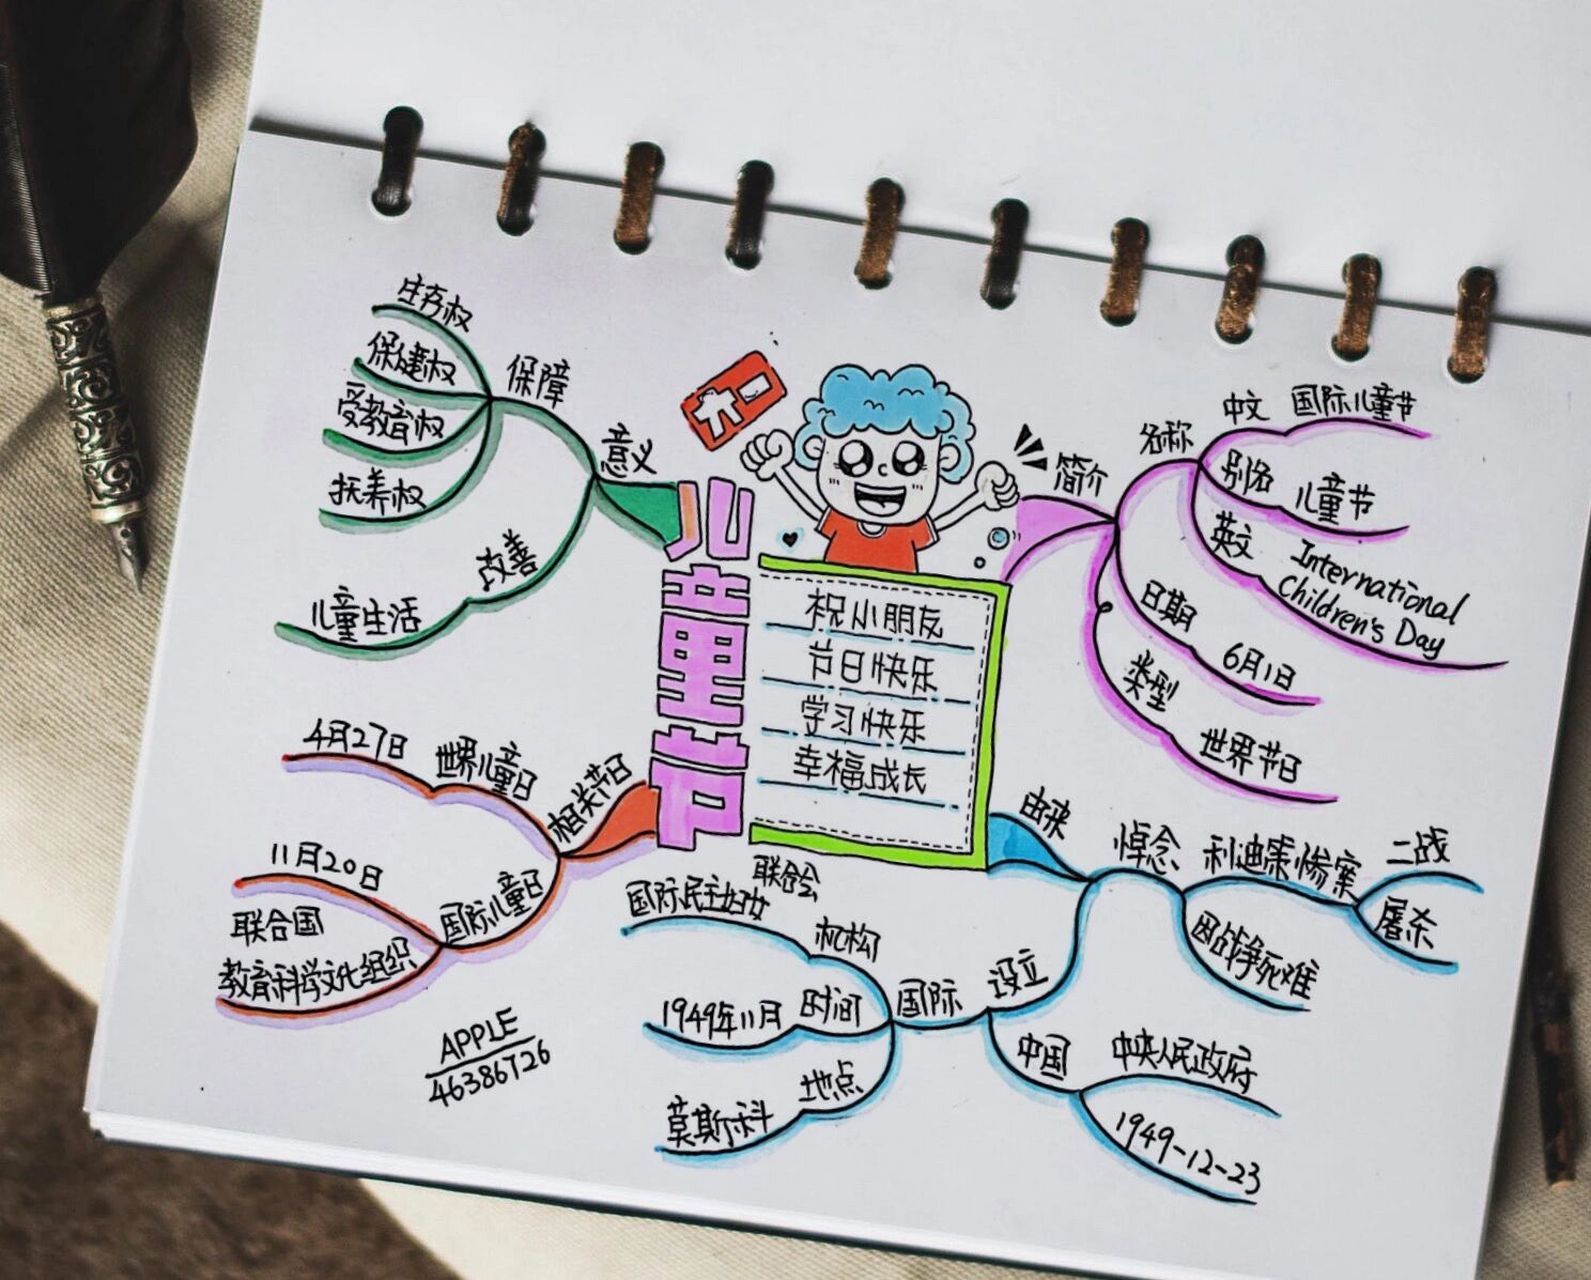 六一
儿童节
祝小朋友
节日快乐
学习快乐
幸福成长
简介
名称
中文
国际儿童节
别名
儿童节
英文
International
Children's Day
日期
6月1日
类型
世界节日
由来
悼念
利迪策惨案
二战
屠杀
因战争死难
设立
国际
机构
国际民主妇女
联合会
时间
1949年11月
地点
莫斯科
中国
中央人民政府
1949-12-23
相关节日
世界儿童日
4月27日
国际儿童日
11月20日
联合国
教育科学文化组织
意义
保障
生存权
保健权
受教育权
抚养权
改善
儿童生活
APPLE
46386726